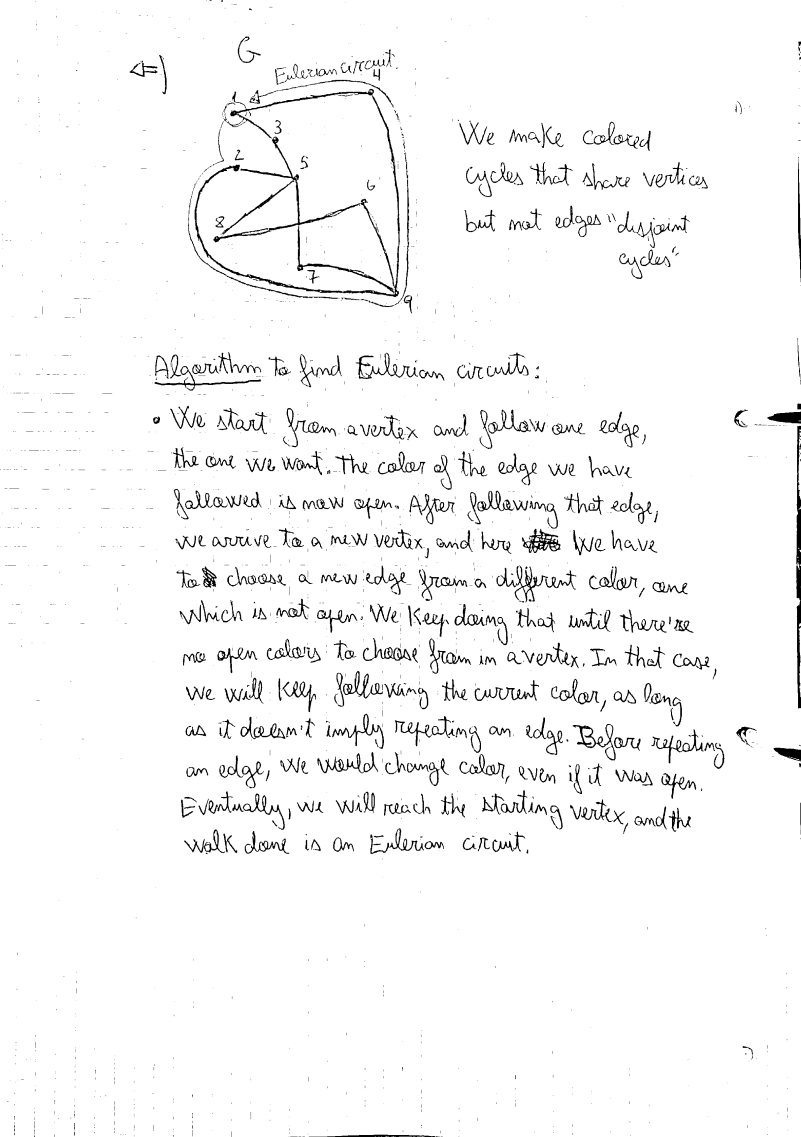 ⇐)
G
Eulerian circuit.
4
1
3
2
5
6
8
7
9
We make colored
cycles that share vertices
but not edges "disjoint
cycles"
Algorithm to find Eulerian circuits:
• We start from a vertex and follow one edge,
the one we want. The color of the edge we have
followed is now open. After following that edge,
we arrive to a new vertex, and here we have
to choose a new edge from a different color, one
which is not open. We keep doing that until there're
no open colors to choose from in a vertex. In that case,
we will keep following the current color, as long
as it doesn't imply repeating an edge. Before repeating
an edge, we would change color, even if it was open.
Eventually, we will reach the starting vertex, and the
walk done is an Eulerian circuit.